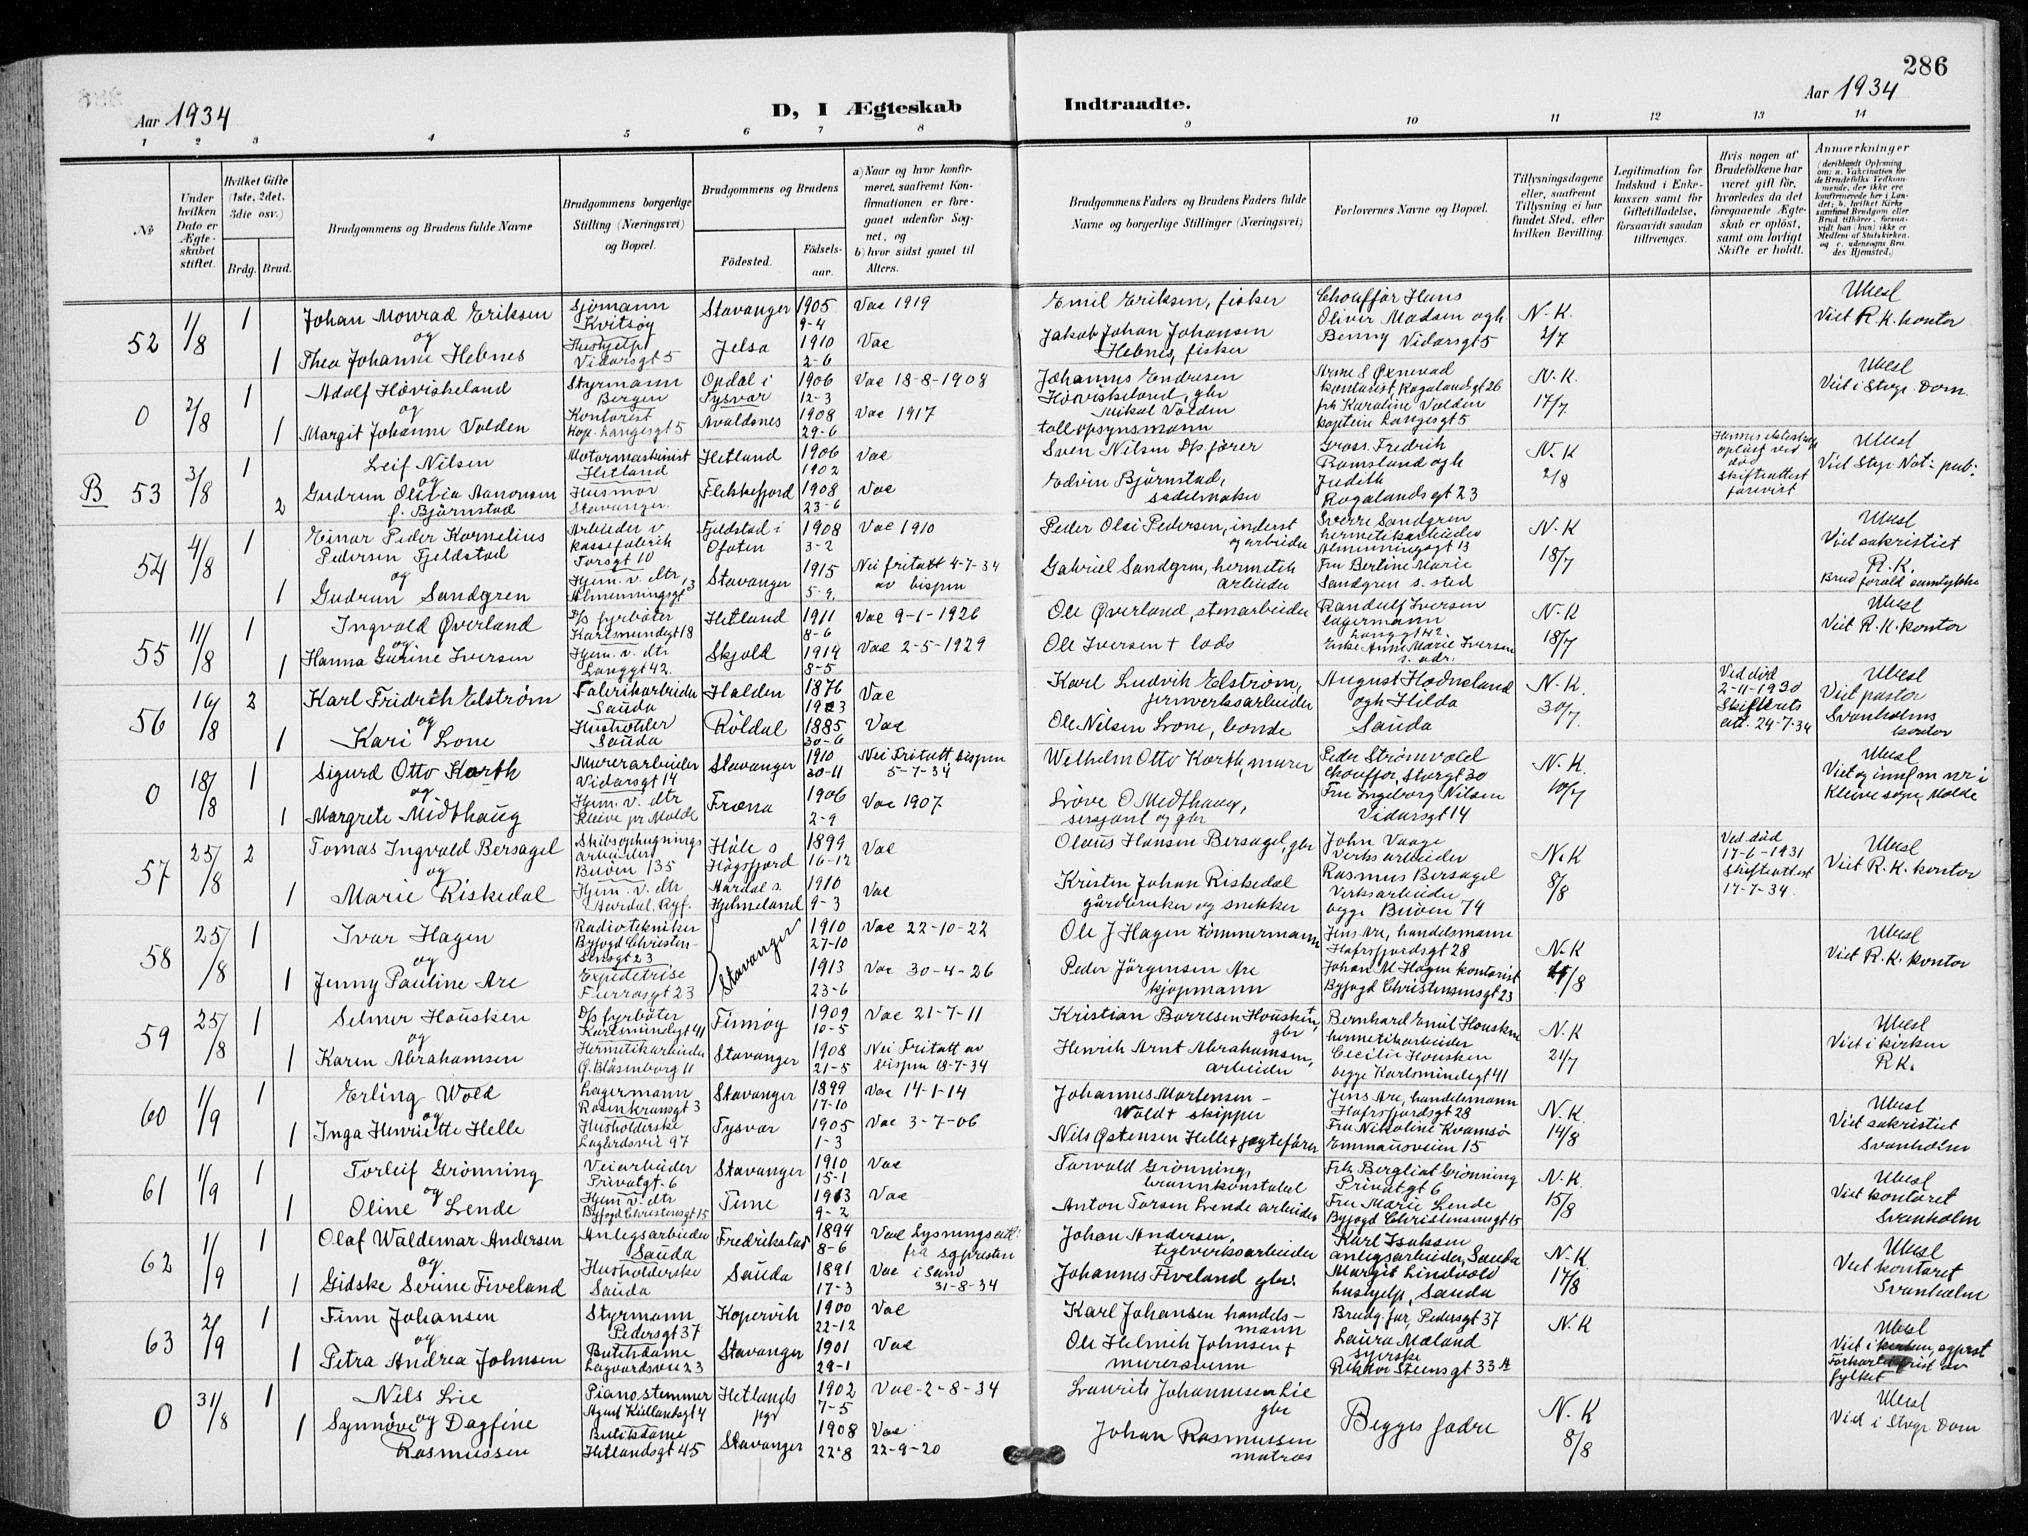 286
Aar 1934
D, I Ægteskab Indtraadte.
Aar 1934
1 2 3 4 5 6 7 8 9 10 11 12 13 14
No
Under hvilken Dato er Ægteskabet stiftet.
Hvilket Gifte (1ste, 2det, 3die osv.)
Brdg. Brud.
Brudgommens og Brudens fulde Navne
Brudgommens borgerlige Stilling (Næringsvei) og Bopæl.
Brudgommens og Brudens
Födested.
Födselsaar.
a) Naar og hvor konfirmeret, saafremt Konfirmationen er foregaaet udenfor Sognet, og
b) hvor sidst gaaet til Alters.
Brudgommens Faders og Brudens Faders fulde Navne og borgerlige Stillinger (Næringsvei)
Forlovernes Navne og Bopæl.
Tillysningsdagene eller, saafremt Tillysning ei har fundet Sted, efter hvilken Bevilling.
Legitimation for Indskud i Enkekassen samt for Giftetilladelse, forsaavidt saadan tiltrænges.
Hvis nogen af Brudefolkene har været gift för, hvorledes da det foregaaende Ægteskab er oplöst, samt om lovligt Skifte er holdt.
Anmærkninger
52 1/8 1 Johan Monrad Eriksen
og
1 Thea Johanne Hebnes
Sjömann
Kvitsøy
Vidarsgt 5
Stavanger 1905 9-4 Vac 1919
Jelsa 1910 2-6 Vac
Emil Eriksen, fisker
Jakob Johan Johansen
Hebnes, fisker
Chouffør Hans
Oliver Madsen ogh
Benny Vidarsgt 5
N-K. 2/7
Ubesl
Viet R.K. kontor
0 2/8 1 Adolf Hoviskeland
og
1 Margit Johanne Valden
Styrmann
Bergen
Kontorist
Kap. Langesgt 5
Opdal i
Tysvær 1906 12-3 Vac 18-8-1908
Avaldsnes 1908 29-6 Vac 1917
Johannes Endresen
Hoviskeland, gbr
Mikal Valden
tollopsynsmann
kontorist, Rogalandsgt 26
frk Karoline Valden
kaptein Langesgt 5
N.K. 17/7
Ubesl
Viet i Stvgr. Dom.
B 53 3/8 1 Leif Nilsen
og
2 Gudrun Olivia Aanonsen
f. Björnstad
Motormaskinist
Hetland
Husmor
Stavanger.
Hetland 1906 1902 Vac
Flekkefjord 1908 23-6 Vac
Sven Nilsen D/s fører
Edvin Bjørnstad,
sadelmaker
Gross. Fredrik
Ramsland ogh
Judith
Rogalandsgt 23
N.K 2/8
oplöst ved
död
Skifteattest
forevist
Ubesl
Viet Stvgr Not-pub-
54 4/8 1 Einar Peder Kornelius
Pedersen Fjeldstad
og
1 Gudrun Sandgren
Arbeider v
kassefabrik
Torsgt 10
Hjem. v. dtr
Almenningsgt 13
Fjeldstad i
Ofoten 1908 3-2 Vac 1910
Stavanger 1915 5-9 Nei fritatt 4-7-34
av bispen
Peder Olai Pedersen, inderst
og arbeider
Gabriel Sandgren, hermetik
arbeider
Sverre Sandgren
hermetikarbeider
Almenningsgt 13
Fru Bertine Marie
Sandgren s. sted
N-K 18/7
Ubesl
Viet sakristiet
R.K.
Brud forald samtykke
55 11/8 1 Ingvald Øverland
og
1 Hanna Gurine Iversen
D/s fyrböter
Karlsmindegt 18
Hjem. v. dtr
Langgt 42.
Hetland 1911 8-6 Vac 9-1-1926
Skjold 1914 8-5 Vac 2-5-1929
Ole Øverland, stenarbeider
Ole Iversen + lods
Randulf Iversen
lagermann
Langgt 42.
Enke Anne Marie Iversen
s. adr.
N-K 18/7
Ubesl
Viet R.K. kontor
56 16/8 2 Karl Fridrth Elstrøm
og
1 Kari Lone
Fabrikarbeider
Sauda
Husholder
Sauda
Halden 1876 19-3 Vac
Röldal 1885 30-6 Vac
Karl Ludvik Elström,
jernverksarbeider
Ole Nilsen Lone, bonde
August Hodneland
ogh Hilda
Sauda
N-K. 30/7.
Ved död
2-11-1930
Skifterets
att. 24-7-34
Ubesl
Viet pastor
Svanholms
kontor
0 18/8 1 Sigurd Otto Korth
og
1 Margrete Midthaug
Murerarbeider
Vidarsgt 14
Hjem. v. dtr
Kleive pr Molde
Stavanger 1910 30-11 Nei Fritatt bispen
5-7-34
Fræna 1906 2-9 Vac 1907
Wilhelm Otto Korth, murer
O Midthaug,
sersjant og gbr
Peder Strømvold
chouffør, Storgt 30
Fru Ingeborg Nilsen
Vidarsgt 14
N-K. 10/7
Ubesl
Kleive sogn, Molde
57 25/8 2 Tomas Ingvald Bersagel
og
1 Marie Riskedal
Skibsophugnings
arbeider
Buøen 135
Hjem. v. dtr
Aardal, Ryf.
Høle s
Högsfjord 1899 16-12 Vac
Aardal s.
Hjelmeland 1910 9-3 Vac
Olaus Hansen Bersagel, gbr
Kristen Johan Riskedal
gårdbruker og snekker
John Vaage
verksarbeider
Rasmus Bersagel
verksarbeider
begge Buöen 74
N.K 8/8
Ved död
17-6-1931
Skifteattest
17-7-34.
Ubesl
Viet R.K. kontor
58 25/8 1 Ivar Hagen
og
1 Jenny Pauline Are
Radiotekniker
Byfogd Christen-
sensgt 23
Expeditrise
Furrasgt 23
Stavanger
1910 27-10 Vac 22-10-22
1913 23-6 Vac 30-4-26
Ole J Hagen tömmermann
Peder Jörgensen Are
kjøpmann
Jens Are, handelsmann
Hafrsfjordsgt 28
Johan M Hagen kontorist
Byfogd Christensensgt 23
N.K /8
Ubesl
Viet R.K. kontor
59 25/8 1 Selmer Housken
og
1 Karen Abrahamsen
D/s fyrböter
Karlsmindegt 41
Hermetikarbeider
Ø. Blåsenborg 11
Finnøy 1909 10-5 Vac 21-7-11
Stavanger 1908 21-5 Nei Fritatt av
bispen 18-7-34
Kristian Borresen Housken,
gbr
Henrik Arnt Abrahamsen,
arbeider
Bernhard Emil Housken
hermetikarbeider
Cecilie Housken
begge Karlsmindegt 41
N.K 24/7
Ubesl
Viet i kirken
R.K.
60 1/9 1 Erling Wold
og
1 Inga Henriette Helle
Lagermann
Rosenkransgt 3
Husholderske
Lagårdsvei 97
Stavanger 1899 17-10 Vac 14-1-14
Tysvær 1905 1-3 Vac 3-7-06
Johannes Mortensen-
Wold + skipper
Nils Østensen Helle + jagtefører
Jens Are, handelsmann
Hafrsfjordsgt 28
Fru Nikoline Kvamsø
Emmausveien 15
N.K. 14/8
Ubesl
Viet sakristiet
Svanholm
61 1/9 1 Torleif Grönning
og
1 Oline Lende
Veiarbeider
Privatgt. 6
Hjem v. dtr
Byfogd Christensgt 15
Stavanger 1910 15-1 Vac
Time 1913 9-2 Vac
Torvald Grönning,
brannkonstabel
Anton Torsen Lende arbeider
Frk Bergliot Grönning
Privatgt 6
Fru Marie Lende
Byfogd Christensensgt 15
N-K. 15/8
Ubesl
Viet kontoret
Svanholm
62 1/9 1 Olaf Waldemar Andersen
og
1 Gidske Serine Fiveland
Anlegsarbeider
Sauda
Husholderske
Sauda
Fredrikstad 1894 8-6 Vac Lysningsatt:
fra sgpresten
Sauda 1891 17-3 Vac i Sand
31-8-34
Johan Andersen,
teglverksarbeider
Johannes Fiveland gbr.
Karl Isaksen
anlegsarbeider, Sauda
Margit Lindvold
hushjelp, Sauda
N.K. 17/8
Ubesl
Viet kontoret
Svanholm
63 2/9 1 Finn Johansen
og
1 Petra Andrea Johnsen
Styrmann
Pedersgt 37
Butikdame
Lagaardsvei 23
Kopervik 1900 22-12 Vac
Stavanger 1901 29-1 Vac
Karl Johansen handels-
mann
Ole Helmik Johnsen +
murersvenn
Brudg. far, Pedersgt 37
Laura Mæland
syerske
Rektor Steensgt 33 A
N.K
Ubesl
Viet i kirken, sgprst
Forkortet frist av
fylket
0 31/8 1 Nils Lie
og
1 Synnöve Dagfine
Rasmussen
Pianostemmer
Agent Kiellandsgt 4
Butikdame
Hetlandsgt 45
Hetlands
pgr 1902 7-5 Vac-2-8-34
Stavanger 1908 22-8 Vac
22-9-20
Lauritz Johannessen Lie
gbr
Johan Rasmussen
matros
Begges fedre
N.K 8/8
Ubesl
Viet i Stvgr Dom